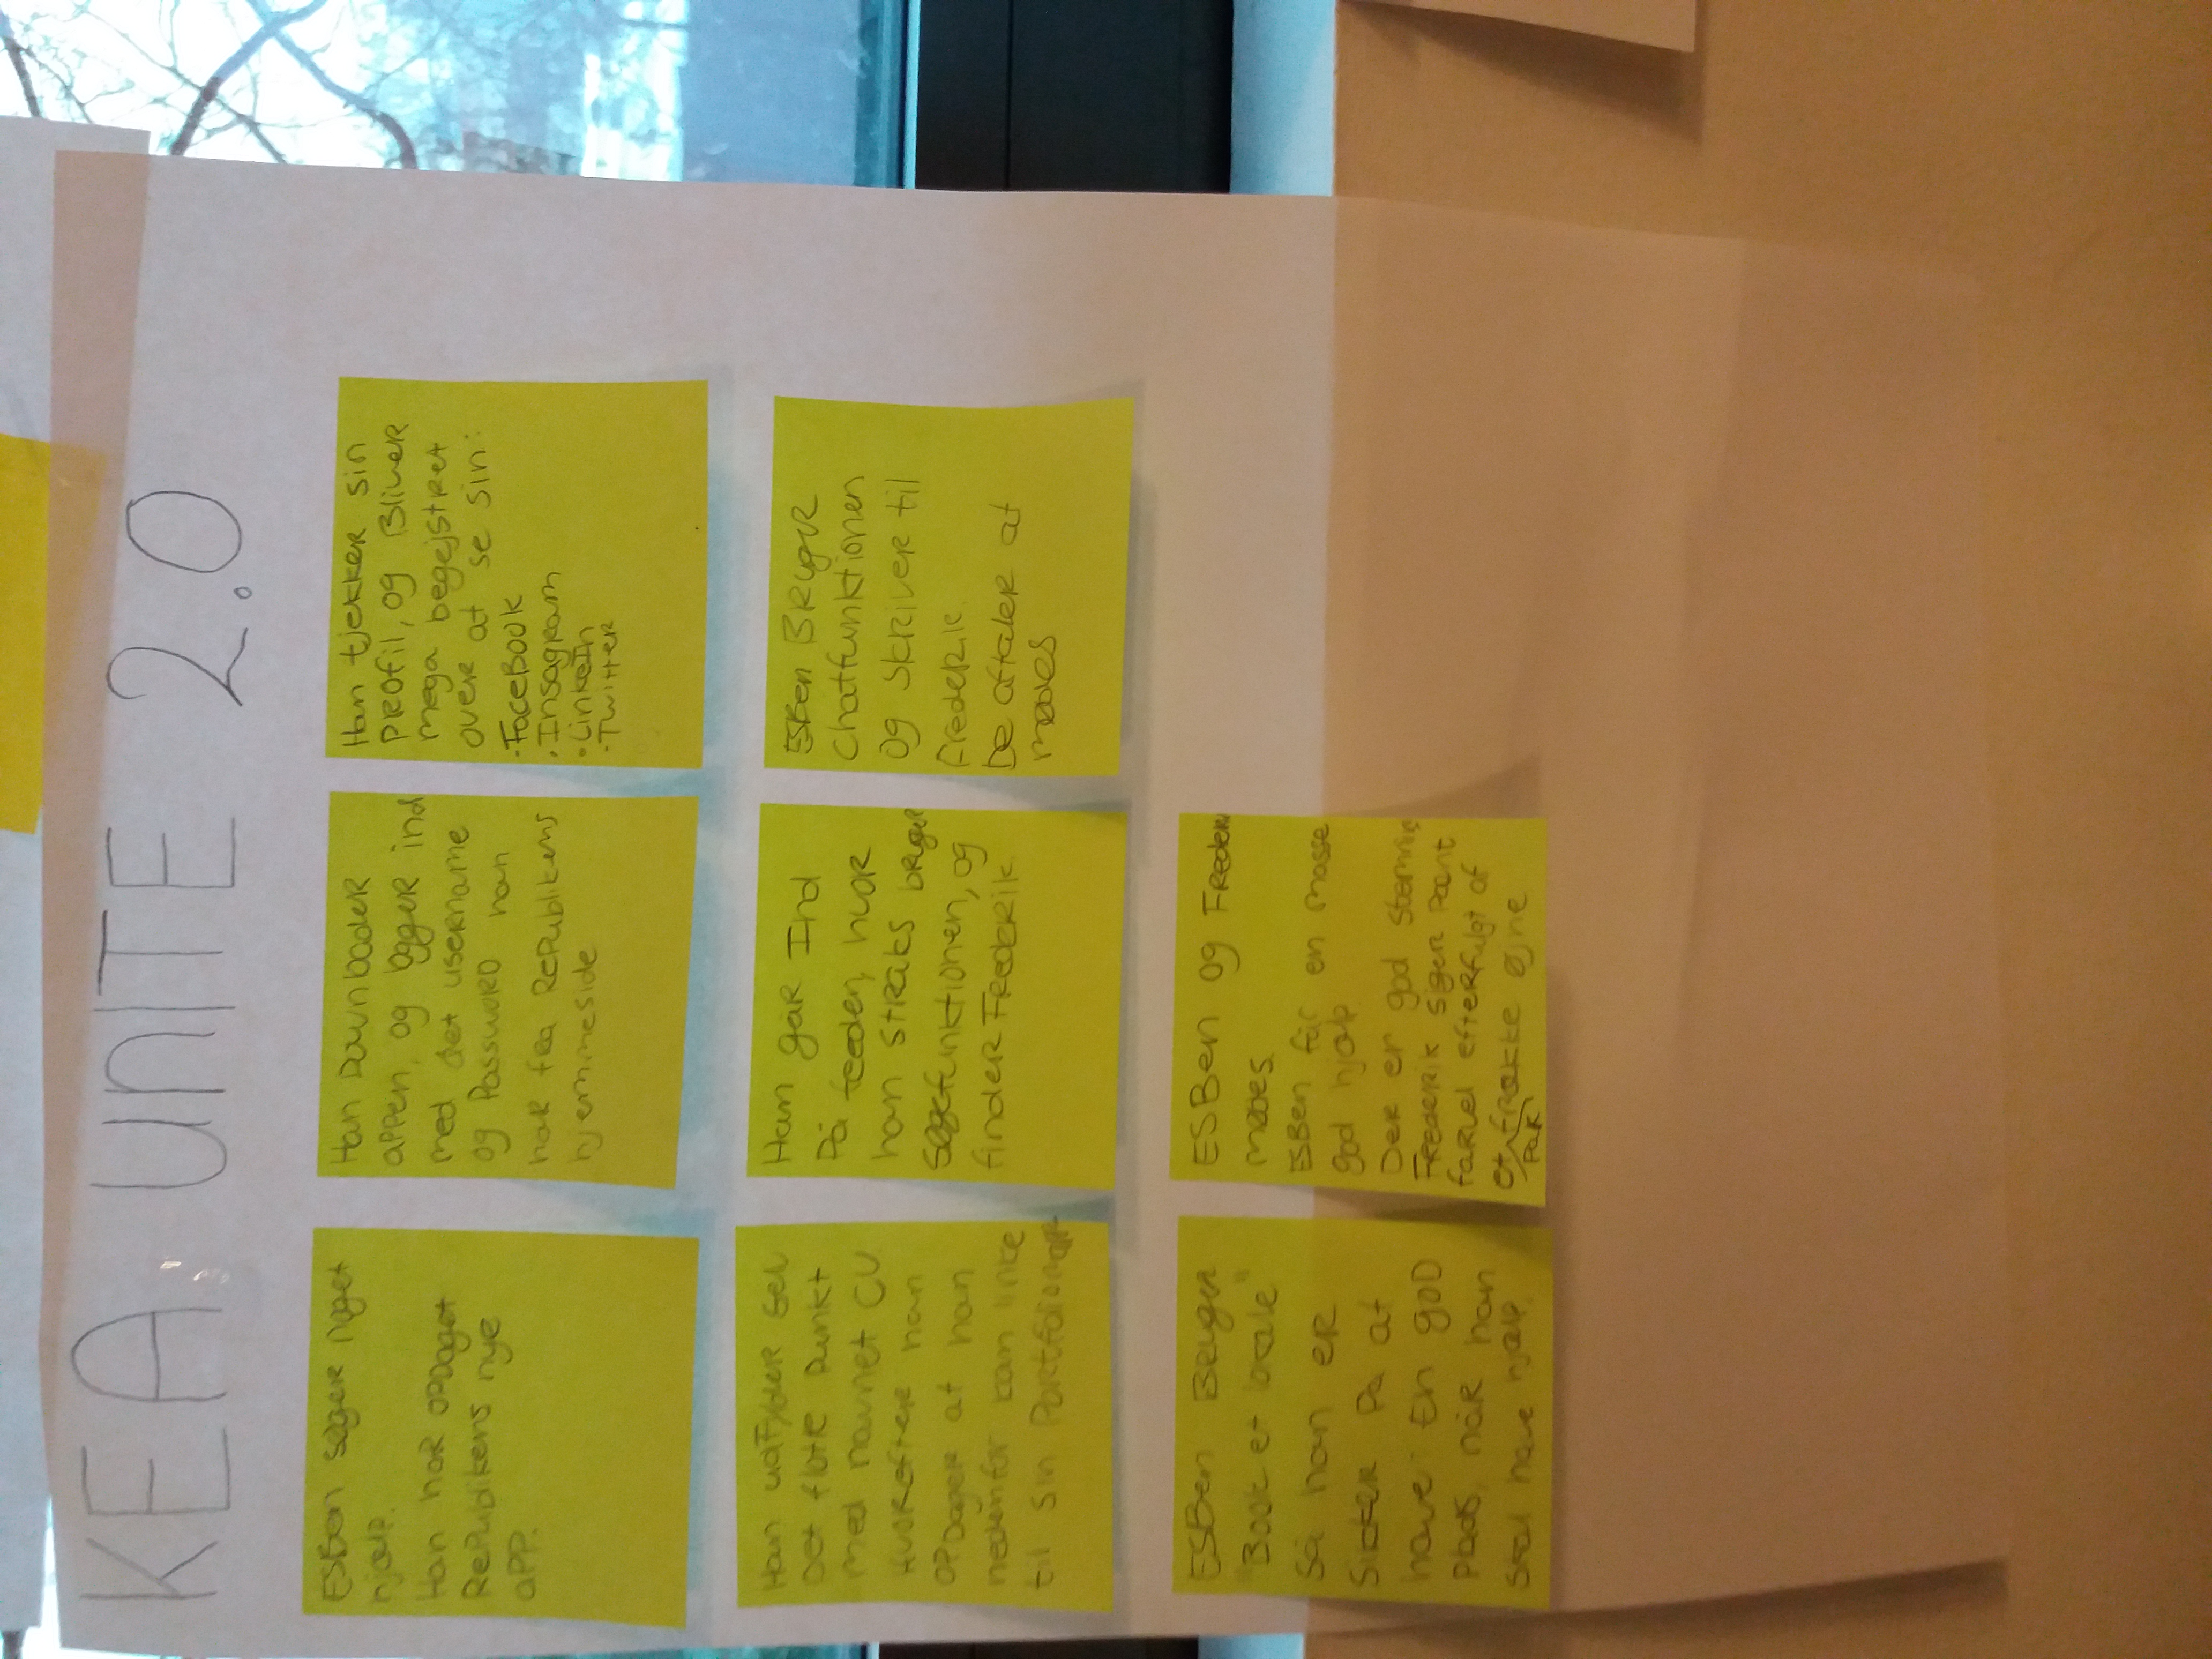 KEA UNITE 2.0
ESBen søger noget
hjælp.
Han har opdaget
Republikens nye
app.
Han Downloader
appen, og logger ind
med det username
og Password han
har fra Republikens
hjemmeside
Han tjekker sin
profil, og Bliver
mega begejstret
over at se sin:
-FaceBook
•Insagram
•LinkeIn
-Twitter
Han udfylder
Det flotte Punkt
med navnet CV
Hvorefter han
opdager at han
nedenfor kan linke
til sin
Han går Ind
På feeden, hvor
han straks bruger
søgefunktionen, og
finder Frederik
ESBen Bruger
Chatfunktionen
og skriver til
Frederik.
De aftaler at
mødes
ESBen Bruger
"Book et lokale"
så han er
sikker på at
have En god
plads, når han
skal have hjælp.
ESBen og
mødes.
ESBen får en masse
god hjælp
Der er god
Frederik siger pænt
farvel efterfulgt af
et par frække øjne